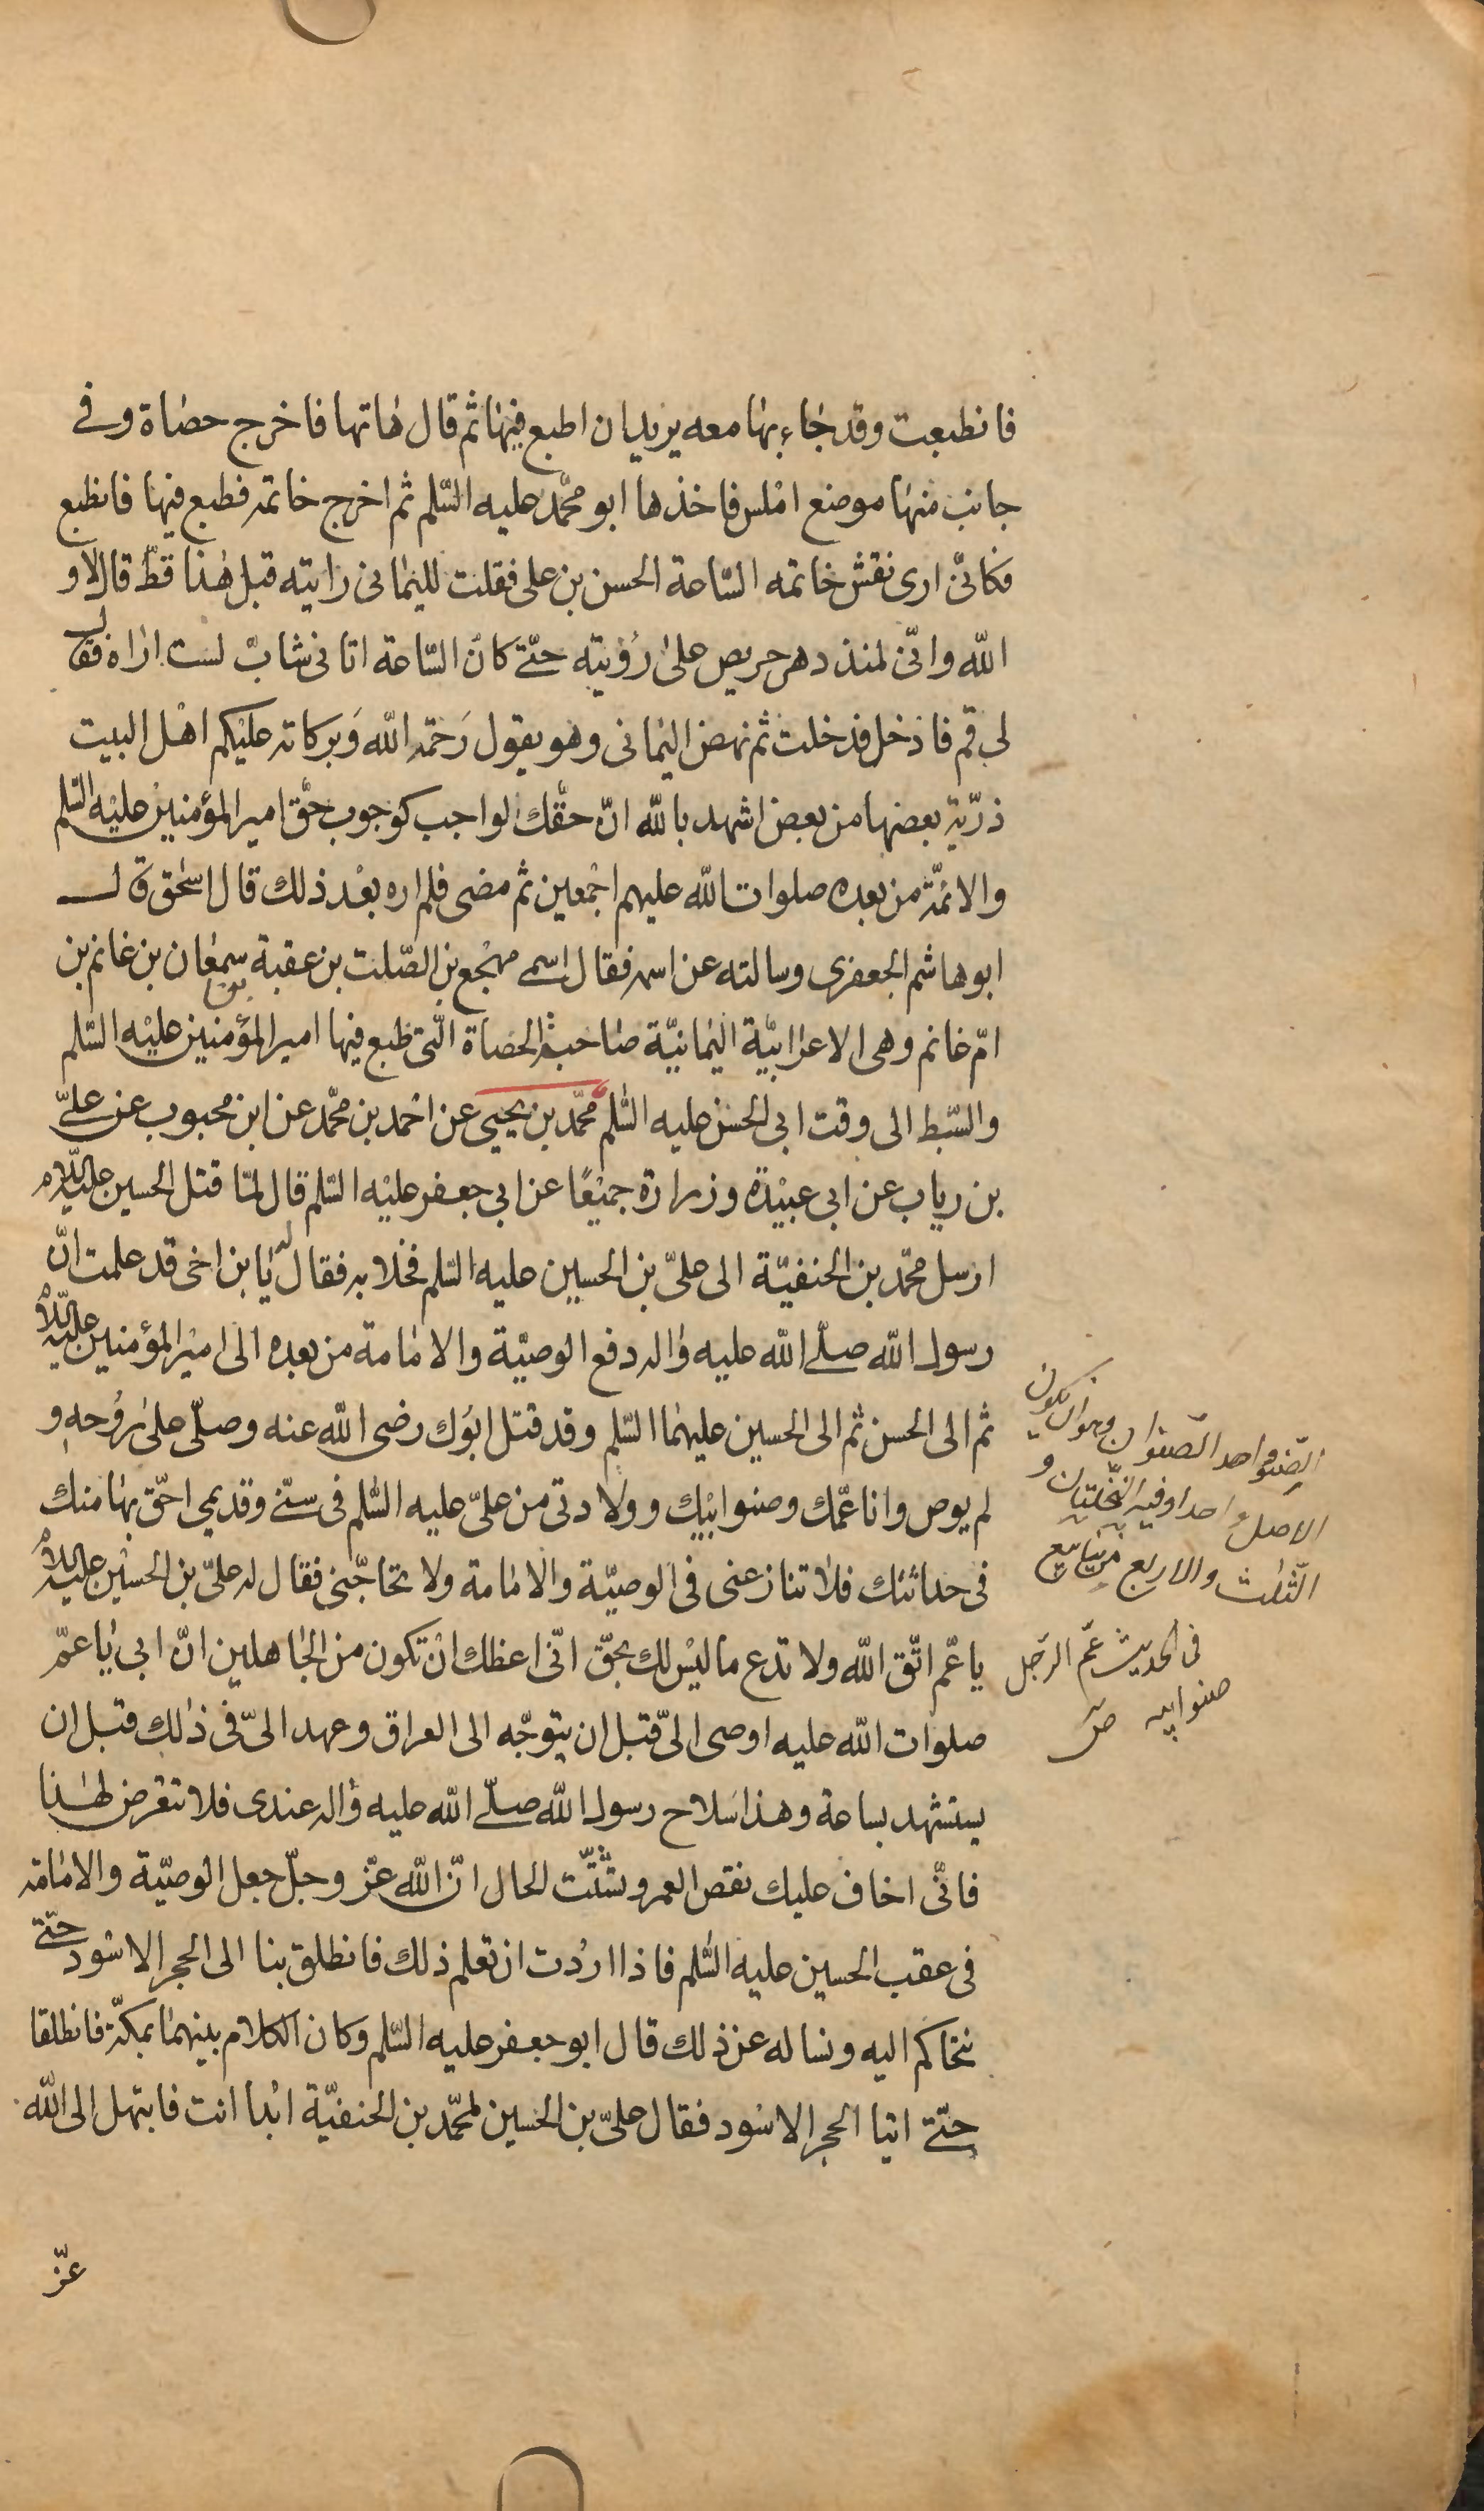 فانطبعت وقد جاء بها معه يريد ان اطبع فيها ثم قال هاتها فاخرج حصاة وفى
جانب منها موضع املس فاخذها ابو محمّد عليه السّلم ثم اخرج خاتمه فطبع فيها فانطبع
فكانّى ارى نقش خاتمه السّاعة الحسن بن على فقلت لليمانى رايته قبل هذا قطّ قال لا و
الله وانّى لمنذ دهر حريص على رؤيته حتّى كان السّاعة اتانى شابّ لست اراه فقال
لى قم فادخل فدخلت ثم نهض اليمانى وهو يقول رحمة الله وبركاته عليكم اهل البيت
ذرّية بعضها من بعض اشهد بالله انّ حقّك لواجب كوجوب حق امير المؤمنين عليه السّلم
والائمّة من بعده صلوات الله عليهم اجمعين ثم مضى فلم اره بعد ذلك قال اسحق قال
ابو هاشم الجعفرى وسالته عن اسمه فقال اسمى مهجع بن الصّلت بن عقبة بن سمعان بن غانم بن
امّ غانم وهى الاعرابيّة اليمانيّة صاحبة الحصاة الّتى طبع فيها امير المؤمنين عليه السّلم
والسّبط الى وقت ابى الحسن عليه السّلم محمّد بن يحيى عن احمد بن محمّد عن ابن محبوب عن علىّ
بن رياب عن ابى عبيدة وزرارة جميعًا عن ابى جعفر عليه السّلم قال لمّا قتل الحسين عليه السّلام
ارسل محمّد بن الحنفيّة الى علىّ بن الحسين عليه السّلم فخلا به فقال له يا بن اخى قد علمت انّ
رسول الله صلّى الله عليه واله دفع الوصيّة والامامة من بعده الى امير المؤمنين عليه السّلام
ثم الى الحسن ثم الى الحسين عليهما السّلم وقد قتل ابوك رضى الله عنه وصلّى على روحه و
لم يوص وانا عمّك وصنو ابيك وولادتى من علىّ عليه السّلم فى سنّى وقديمى احقّ بها منك
فى حداثتك فلا تنازعنى فى الوصيّة والامامة ولا تحاجّنى فقال له علىّ بن الحسين عليه السّلام
يا عمّ اتّق الله ولا تدع ما ليس لك بحقّ انّى اعظك ان تكون من الجاهلين انّ ابى يا عمّ
صلوات الله عليه اوصى الىّ قبل ان يتوجّه الى العراق وعهد الىّ فى ذلك قبل ان
يستشهد بساعة وهذا سلاح رسول الله صلّى الله عليه واله عندى فلا تتعرض لهذا
فانّى اخاف عليك نقص العمر وتشتّت الحال انّ الله عزّ وجلّ جعل الوصيّة والامامة
فى عقب الحسين عليه السّلم فاذا اردت ان تعلم ذلك فانطلق بنا الى الحجر الاسود حتّى
نتحاكم اليه ونساله عن ذلك قال ابو جعفر عليه السّلم وكان الكلام بينهما بمكّة فانطلقا
حتّى اتيا الحجر الاسود فقال علىّ بن الحسين لمحمّد بن الحنفيّة ابدا انت فابتهل الى الله
عزّ
الصنو احد الصنوان وهو ان يكون
الاصل واحدا وفيه النخلتان و
الثلث والاربع
فى الحديث عمّ الرّجل
صنو ابيه